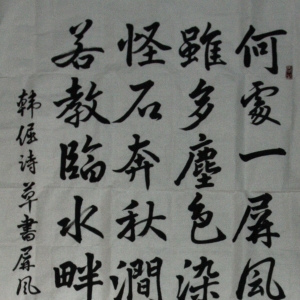 何處一屏風
雖多塵色染
怪石奔秋澗
若教臨水畔
韓偓詩草書屏風